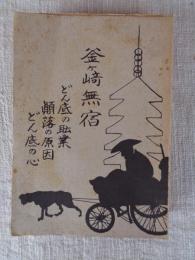 釜ヶ崎無宿
どん底の職業
顚落の原因
どん底の心